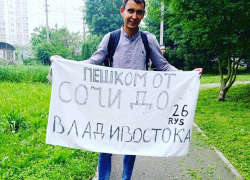 ПЕШКОМ ОТ
СОЧИ ДО
26
RYS
ВЛАДИВОСТОКА